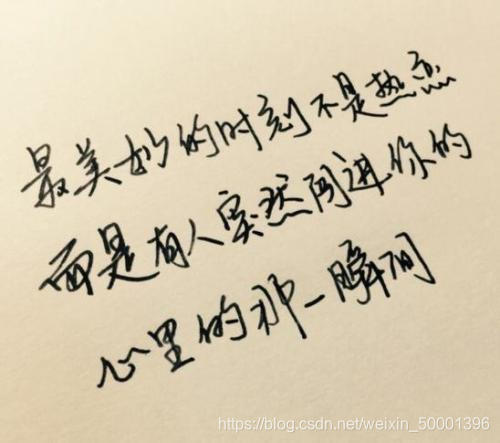 最美妙的时刻不是热恋
而是有人突然闯进你的
心里的那一瞬间
https://blog.csdn.net/weixin_50001396